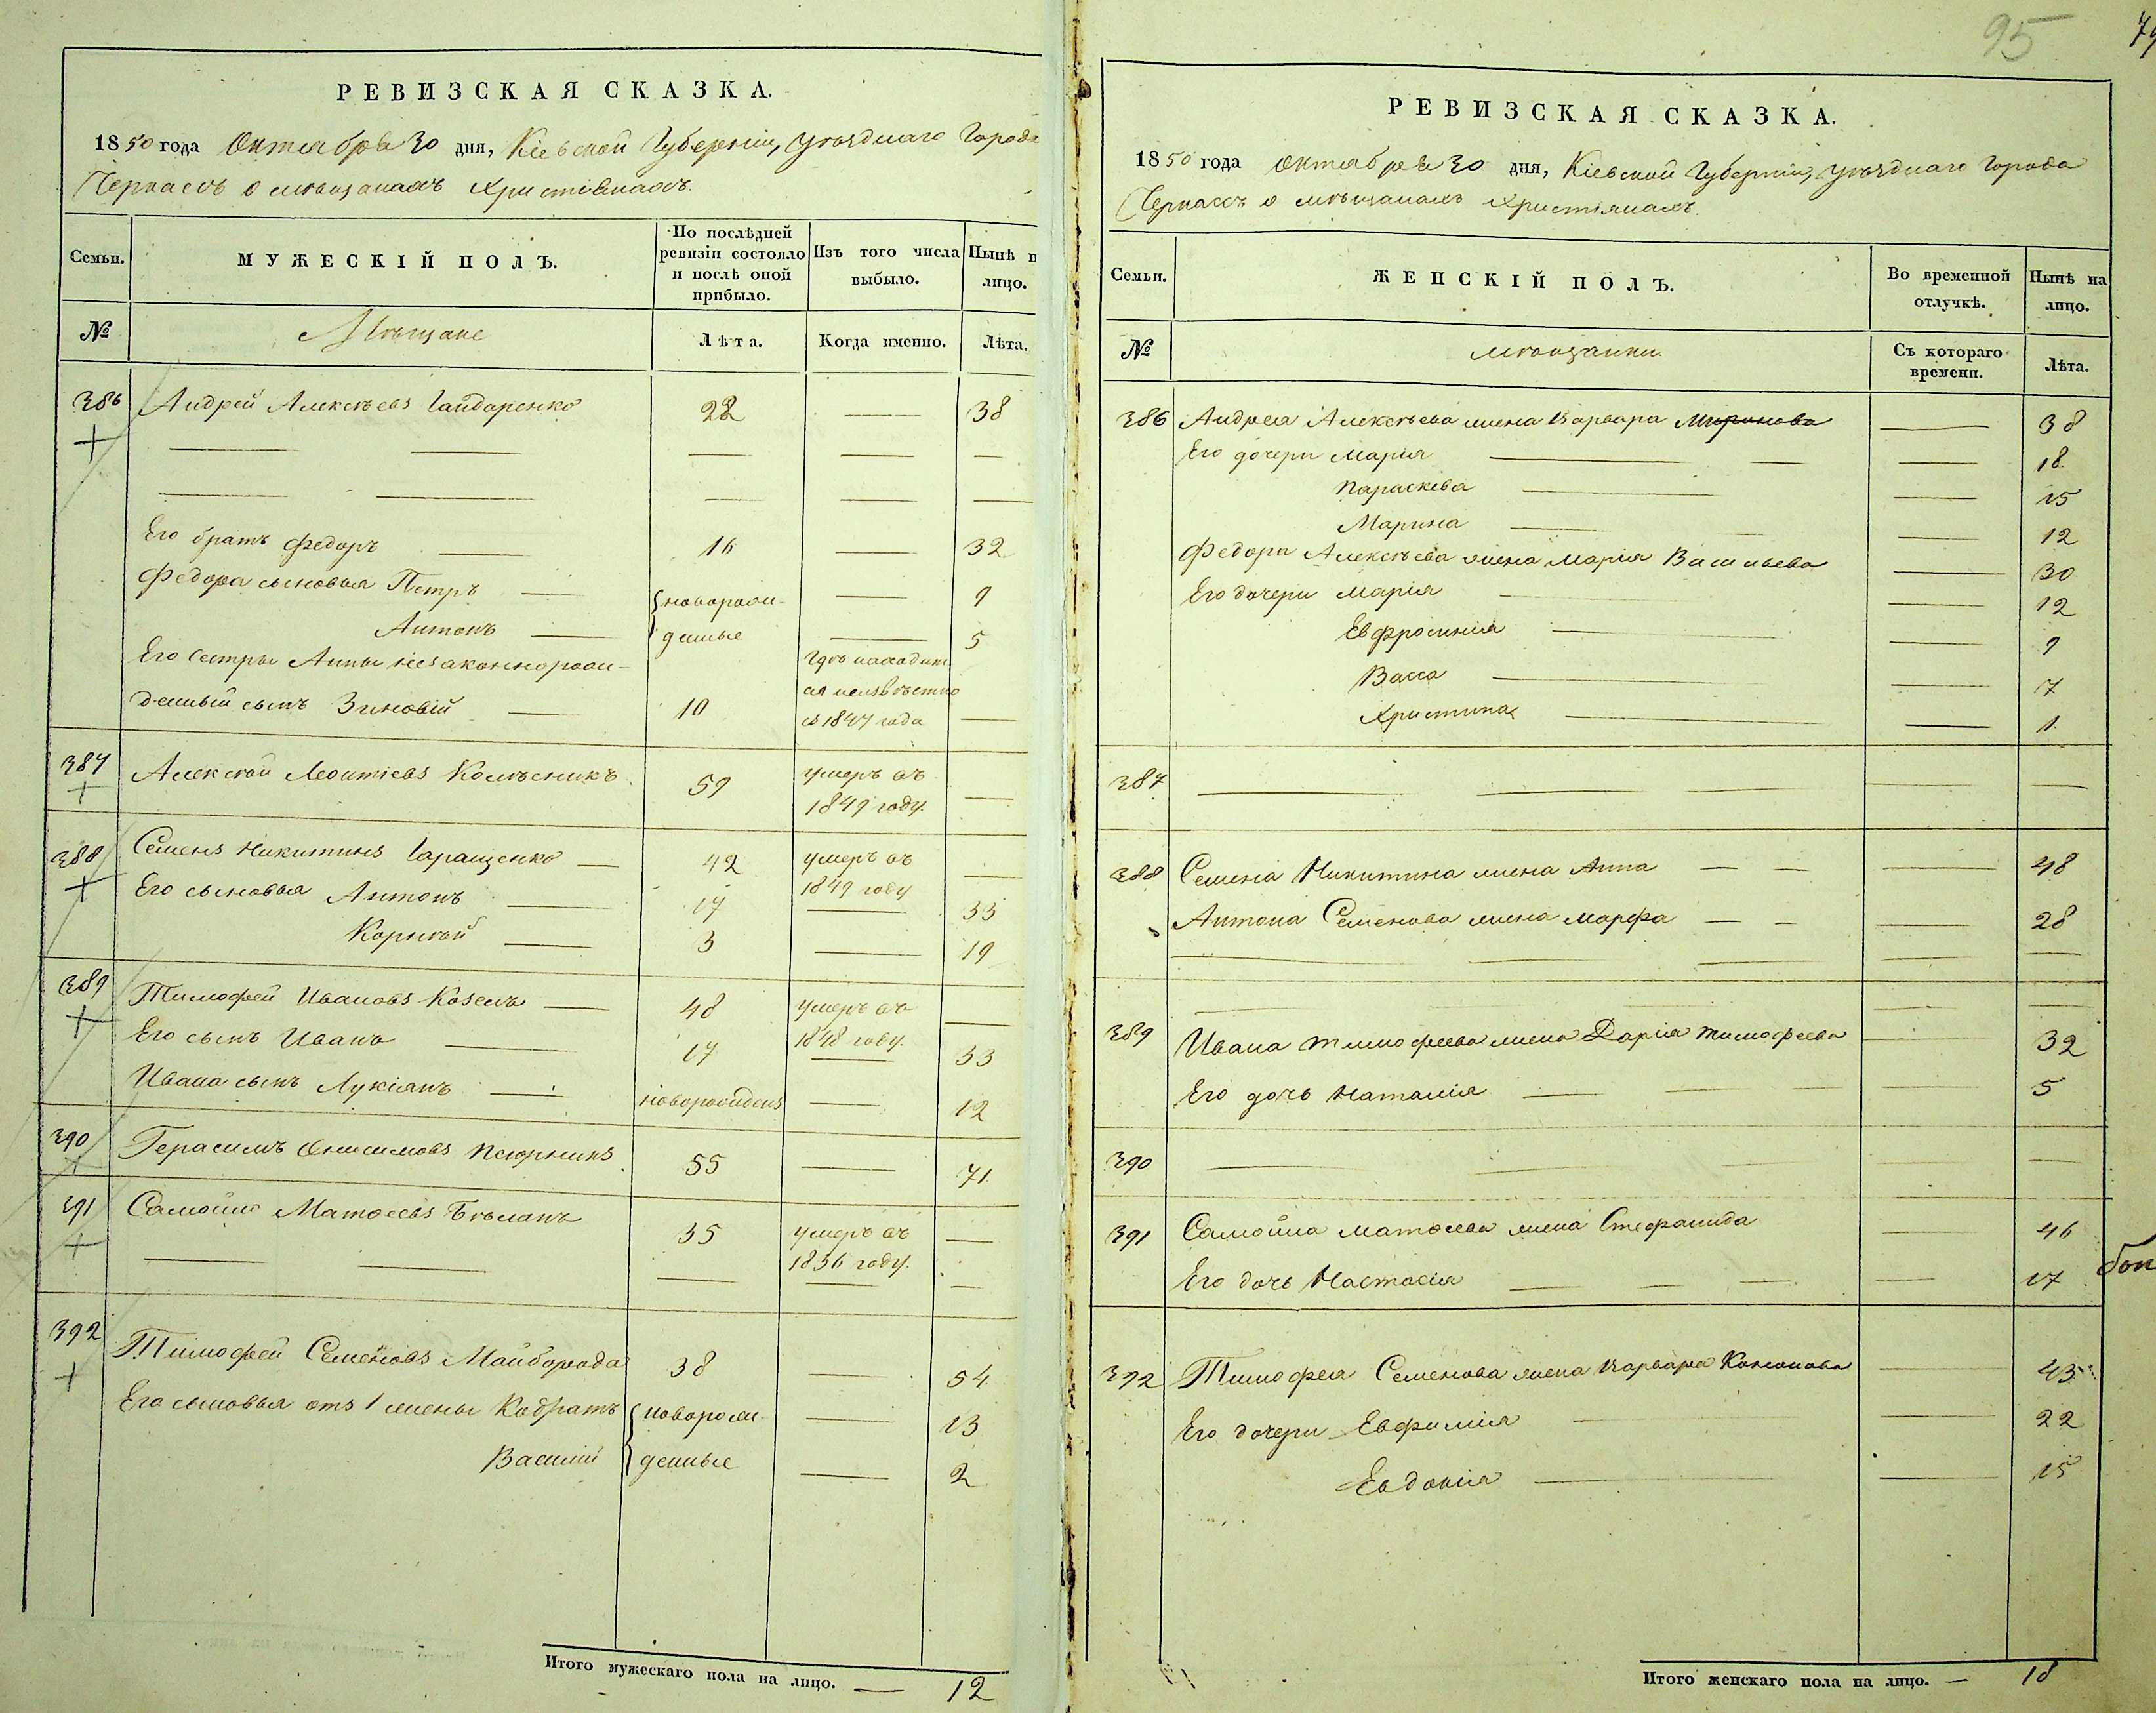 РЕВИЗСКАЯ СКАЗКА.
1850 года Октября 30 дня, Кіевской Губерніи, уѣзднаго Города
Черкасъ о мѣщанахъ Христіянахъ.
Семьи.
МУЖЕСКІЙ ПОЛЪ.
По послѣдней ревизіи состояло и послѣ оной прибыло.
Изъ того числа выбыло.
Нынѣ н лицо.
№
Мѣщане
Лѣта.
Когда именно.
Лѣта.
386 Андрей Алексѣевъ Гайдаренко 22 — 38
Его братъ Федоръ — 16 — 32
Федора сыновья Петръ — новорож- — 9
Антонъ — денные — 5
Его сестры Анны незаконнорож- Гдѣ находит
денный сынъ Зиновій — 10 ся неизвѣстно
съ 1847 года —
387 Алексѣй Леонтіевъ Колѣсникъ 59 умеръ въ
1849 году. —
388 Семенъ Никитинъ Геращенко — 42 умеръ въ
1849 году —
Его сыновья Антонъ — 17 — 33
Корнѣй — 3 — 19
389 Тимофей Ивановъ Козелъ — 48 умеръ въ
1848 году. —
Его сынъ Иванъ — 17 — 33
Ивана сынъ Лукіянъ — новорожденъ — 12
390 Герасимъ Онисимовъ 55 — 71
391 Самойло Матвеевъ Бѣланъ 35 умеръ въ —
1836 году.
392 Тимофей Семеновъ Майборода 38 — 54
Его сыновья отъ 1 жены Кодратъ новорож- — 13
Василій денные — 2
Итого мужескаго пола на лицо. — 12
95
79
РЕВИЗСКАЯ СКАЗКА.
1850 года Октября 30 дня, Кіевской Губерніи, уѣзднаго Города
Черкасъ о мѣщанахъ Христіянахъ.
Семьи.
ЖЕНСКІЙ ПОЛЪ.
Во временной отлучкѣ.
Нынѣ на лицо.
№
мѣщанки
Съ котораго времени.
Лѣта.
386 Андрея Алексѣева жена Варвара Миронова — 38
Его дочери Марія — 18
Параскева — 15
Марина — 12
Федора Алексѣева жена Марія Васильева — 30
Его дочери Марія — 12
Евфросинія — 9
Васса — 7
Христина — 1.
387 — — —
388 Семена Никитина жена Анна — — 48
Антона Семенова жена Марфа — — 28
389 Ивана Тимофеева жена Дарія Тимофеева — 32
Его дочь Наталія — 5
390 — — —
391 Самойла Матвеева жена Стефанида — 46
Его дочь Настасія — 17
392 Тимофея Семенова жена Варвара Кононова — 43
Его дочери Евфимія — 22
Евдокія — 15
Итого женскаго пола на лицо. — 18